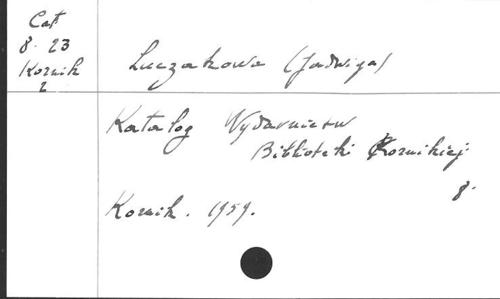 Cat
8. 23
Kornik
2
Luczakowa (Jadwiga)
Katalog Wydawnictw
Biblioteki Kornikiej
8.
Kornik. 1959.